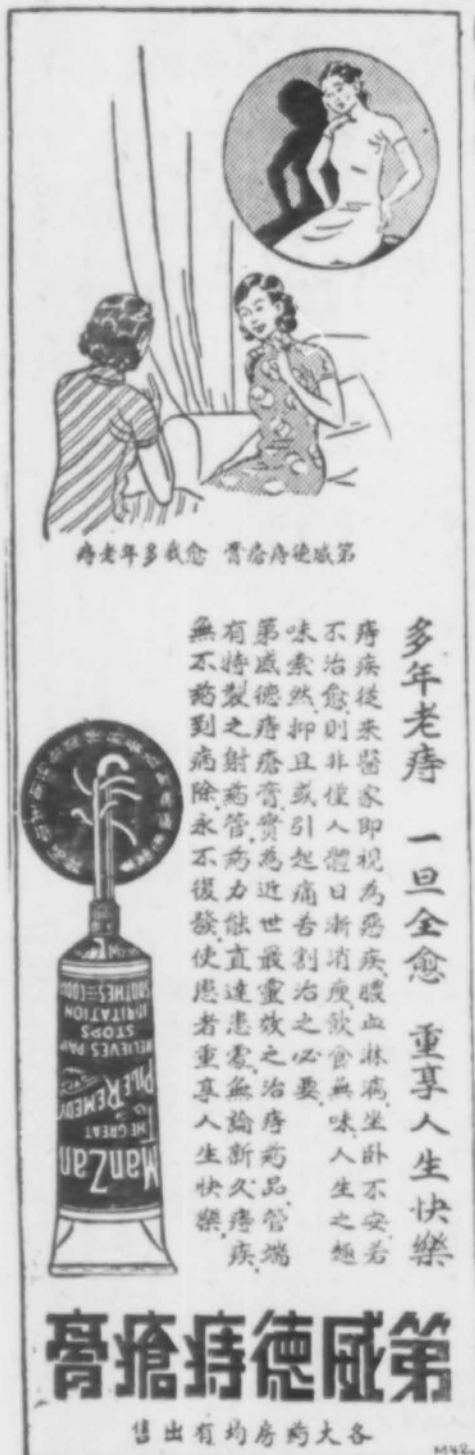 第威德痔瘡膏 愈我多年老痔
多年老痔 一旦全愈 重享人生快樂
痔疾從來醫家即視為惡疾,膿血淋漓,坐臥不安,若
不治愈,則非僅人體日漸消瘦,飲食無味,人生之趣
味索然,抑且或引起痛苦割治之必要,
第威德痔瘡膏,實為近世最靈效之治痔药品,管端
有特製之射药管,药力能直達患處,無論新久痔疾,
無不药到病除,永不復發,使患者重享人生快樂,
ManZan
THE GREAT
PILE REMEDY
RELIEVES PAIN
STOPS
IRRITATION
SOOTHES-COOLS
第威德痔瘡膏
各大药房均有出售